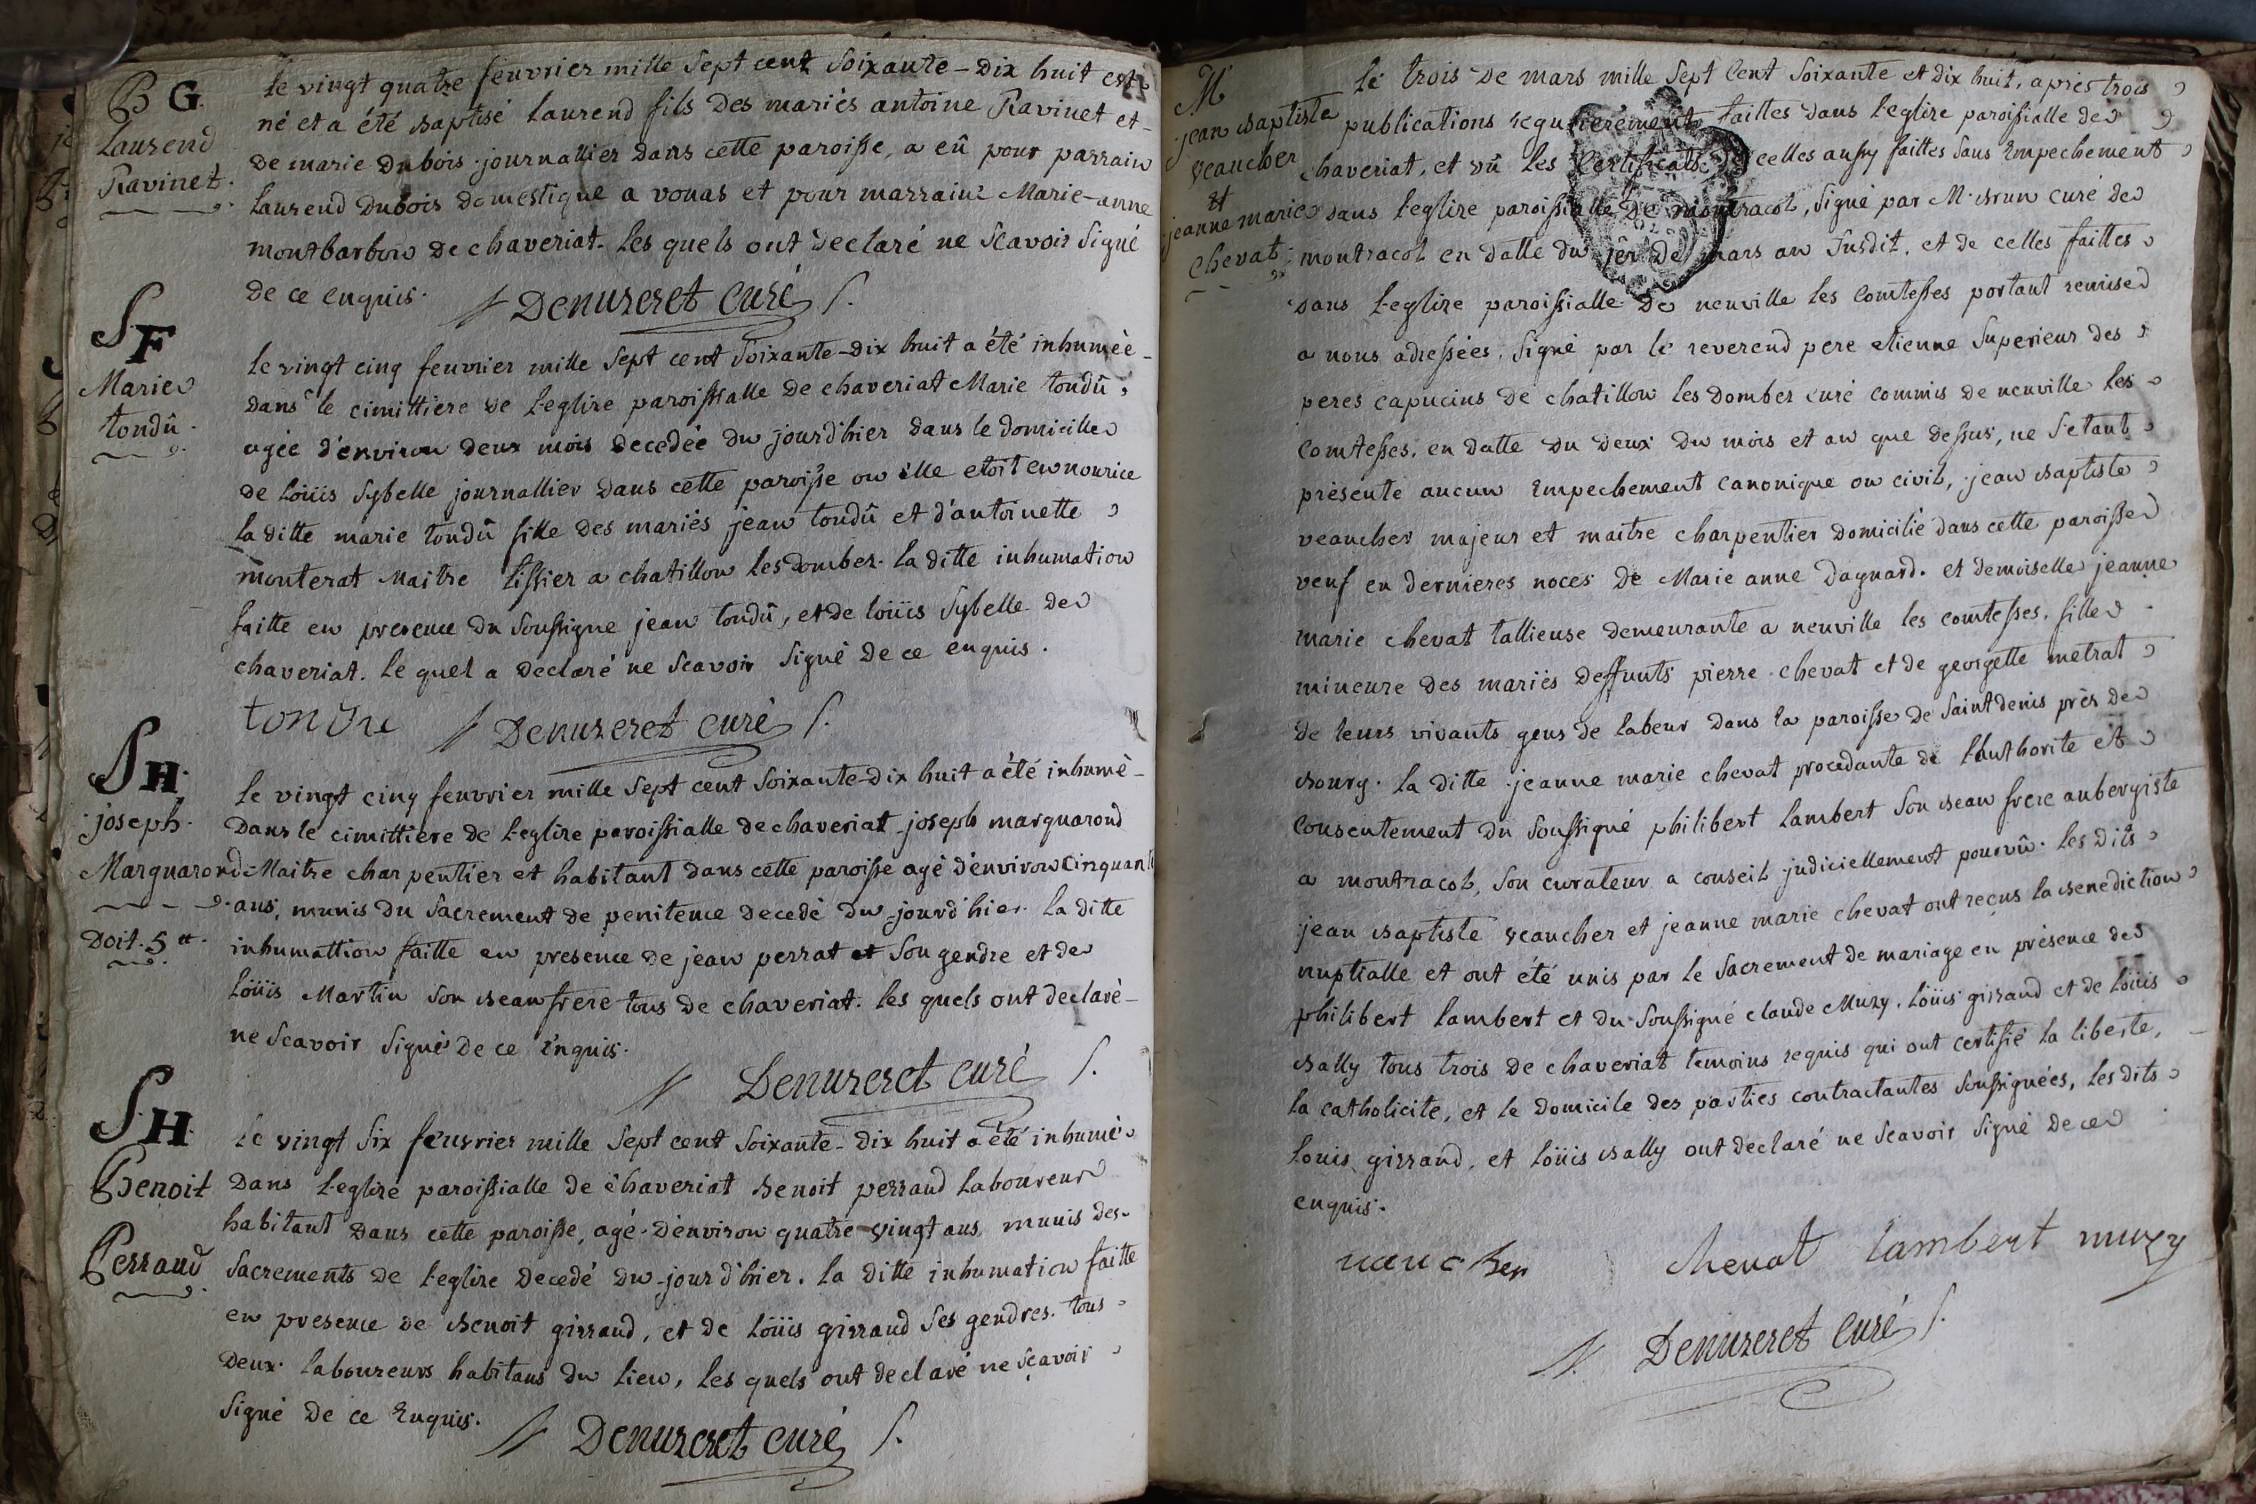 B G.
Laurend
Ravinet.
Le vingt quatre feuvrier mille Sept cent Soixante-Dix huit est
né et a été baptisé Laurend fils Des mariés antoine Ravinet et-
De marie Dubois journallier Dans cette paroisse, a eû pour parrain
Laurend Dubois Domestique a vonas et pour marraine Marie-anne
montbarbon De chaveriat. Les quels ont Declaré ne Scavoir Signé
De ce enquis.
Denuzeret curé
S F
Marie
tondû.
Le vingt cinq feuvrier mille Sept cent Soixante-Dix huit a été inhumée-
Dans le cimittiere De l'eglize paroissialle De chaveriat Marie tondû,
agée d'environ Deux mois Decedée Du jourd'hier Dans le Domicille
De Loüis Sybelle journallier Dans cette paroisse ou elle etoit en nourice
la Ditte marie tondû fille Des mariés jean tondû et d'antoinette
monterat Maitre tissier a chatillon les Dombez. la Ditte inhumation
faitte en presence Du Soussigne jean tondû, et de Loüis Sybelle De
chaveriat. Le quel a Declaré ne Scavoir Signé De ce enquis.
tondu Denuzeret curé
S H.
joseph.
Marguarond
Doit. 5 tt.
Le vingt cinq feuvrier mille Sept cent Soixante-Dix huit a été inhumé-
Dans le cimittiere De l'eglize paroissialle De chaveriat joseph marguarond
Maitre charpentier et habitant Dans cette paroisse agé d'environ Cinquante
ans, munis Du Sacrement De penitence Decedé Du jourd'hier. La Ditte
inhumattion faitte en presence De jean perrat et Son gendre et De
Loüis Martin Son beaufrere tous De chaveriat. les quels ont Declaré-
ne Scavoir Signé De ce Enquis.
Denuzeret curé
S H.
Benoit
Perraud
Le vingt Six feuvrier mille Sept cent Soixante-Dix huit a été inhumé
Dans l'eglize paroissialle De chaveriat Benoit perraud Laboureur
habitant Dans cette paroisse, agé D'environ quatre vingt ans, munis Des
Sacrements De l'eglize Decedé Du-jour d'hier. la Ditte inhumation faitte
en presence De Benoit girraud, et De Loüis girraud Ses gendres. tous
Deux. Laboureurs habitans Du Lieu, Les quels ont Declaré ne Scavoir
Signé De ce Enquis.
Denuzeret curé
M
jean baptiste
veaucher
et
jeanne marie
chevat.
Le trois De mars mille Sept Cent Soixante et Dix huit, après trois
publications regulierement faittes Dans l'eglize paroissialle De
chaveriat, et vû les Certificats De celles aussy faittes Sans Empechement
Dans l'eglize paroissialle De montracol, Signé par M. brun curé De
montracol en Datte Du 1er De mars an Susdit, et de celles faittes
Dans l'eglize paroissialle De neuville les Comtesses portant remise
a nous adressées, Signé par le reverend pere etienne Superieur Des
peres capucins De chatillon les Dombez curé commis De neuville les
Comtesses, en Datte Du Deux Du mois et an que Dessus, ne S'etant
présenté aucun Empechement canonique ou civil, jean baptiste
veaucher majeur et maitre charpentier Domicilié Dans cette paroisse
veuf en Dernieres noces De Marie anne Dagnard. et Demoiselle jeanne
marie chevat tallieuse Demeurante a neuville les comtesses, fille
mineure Des mariés Deffunts pierre chevat et De georgette metrat
De leurs vivants gens De Labeur Dans la paroisse De Saint Denis près De
Bourg. la Ditte jeanne marie chevat procedante De L'authorité et
Consentement Du Soussigné philibert Lambert Son beau frere aubergiste
a montracol, Son curateur a conseil judiciellement pourvû. Les Dits
jean baptiste veaucher et jeanne marie chevat ont reçus la benediction
nuptialle et ont été unis par le Sacrement De mariage en présence De
philibert Lambert et Du Soussigné claude Muzy, Loüis girraud et De Loüis
bally tous trois De chaveriat temoins requis qui ont certifié la liberté,
la catholicité, et le Domicile Des parties contractantes Soussignées, Les Dits
Louis girraud, et Loüis bally ont Declaré ne Scavoir Signé De ce
enquis.
vaucher chevat lambert muzy
Denuzeret Curé